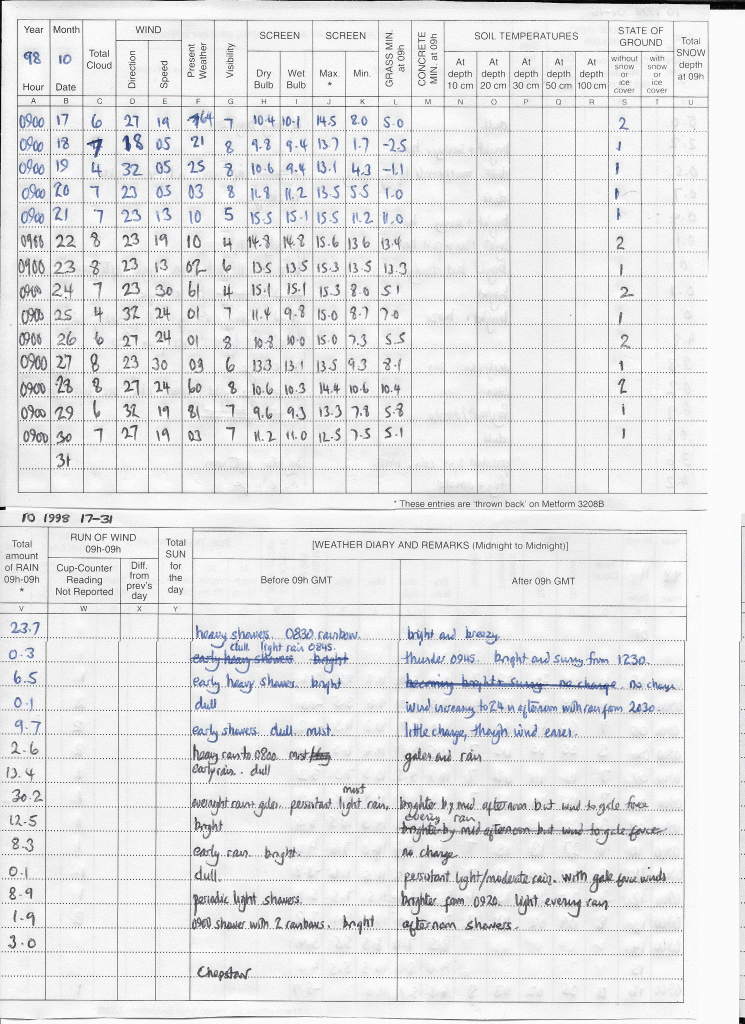 Year Month Total Cloud WIND Present Weather Visibility SCREEN SCREEN GRASS MIN. at 09h CONCRETE MIN. at 09h SOIL TEMPERATURES STATE OF GROUND Total SNOW depth at 09h
98 10 Direction Speed Dry Bulb Wet Bulb Max. * Min. At depth 10 cm At depth 20 cm At depth 30 cm At depth 50 cm At depth 100 cm without snow or ice cover with snow or ice cover
Hour Date
A B C D E F G H I J K L M N O P Q R S T U
0900 17 6 27 19 64 7 10.4 10.1 14.5 8.0 5.0 2
0900 18 7 18 05 21 8 9.8 9.4 13.7 1.7 -2.5 1
0900 19 4 32 05 25 8 10.6 9.4 13.1 4.3 -1.1 1
0900 20 7 23 05 03 8 11.8 11.2 13.5 5.5 1.0 1
0900 21 7 23 13 10 5 15.5 15.1 15.5 11.2 11.0 1
0900 22 8 23 19 10 4 14.8 14.8 15.6 13.6 13.4 2
0900 23 8 23 13 02 6 13.5 13.5 15.3 13.5 13.3 1
0900 24 7 23 30 61 4 15.1 15.1 15.3 8.0 5.1 2
0900 25 4 32 24 01 7 11.4 9.8 15.0 8.7 7.0 1
0900 26 6 27 24 01 8 10.8 10.0 15.0 7.3 5.5 2
0900 27 8 23 30 03 6 13.3 13.1 13.5 9.3 8.1 1
0900 28 8 27 24 60 8 10.6 10.3 14.4 10.6 10.4 2
0900 29 6 32 19 81 7 9.6 9.3 13.3 7.8 5.8 1
0900 30 7 27 19 03 7 11.2 11.0 12.5 7.5 5.1 1
31
* These entries are 'thrown back' on Metform 3208B
10 1998 17-31
Total amount of RAIN 09h-09h * RUN OF WIND 09h-09h Total SUN for the day [WEATHER DIARY AND REMARKS (Midnight to Midnight)]
Cup-Counter Reading Not Reported Diff. from prev's day Before 09h GMT After 09h GMT
V W X Y
23.7 heavy showers. 0830 rainbow. bright and breezy.
dull. light rain 0845.
0.3 early heavy showers bright thunder 0945. bright and sunny from 1230.
6.5 early heavy showers. bright becoming bright + sunny no change. no change
0.1 dull wind increasing to 24 in afternoon with rain from 2030.
9.7 early showers. dull. mist. little change, though wind eases.
2.6 heavy rain to 0800 mist gales and rain
13.4 early rain. dull
mist
30.2 overnight rain + gales. persistant light rain. brighter by mid afternoon but wind to gale force
evening rain
12.5 bright brighter by mid afternoon but wind to gale force
8.3 early rain. bright. no change
0.1 dull. persistant light/moderate rain. with gale force winds
8.9 periodic light showers. brighter from 0920. light evening rain
1.9 0900 shower with 2 rainbows. bright afternoon showers.
3.0
Chepstow